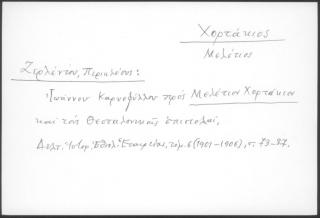 Χορτάκιος
Μελέτιος
Ζερλέντου, Περικλέους:
Ἰωάννου Καρυοφύλλου πρὸς Μελέτιον Χορτάκιον
καὶ τὸν Θεσσαλονίκης ἐπιστολαί,
Δελτ. Ἱστορ. Ἐθνολ. Ἑταιρείας, τομ. 6 (1901-1906), σ. 73-87.